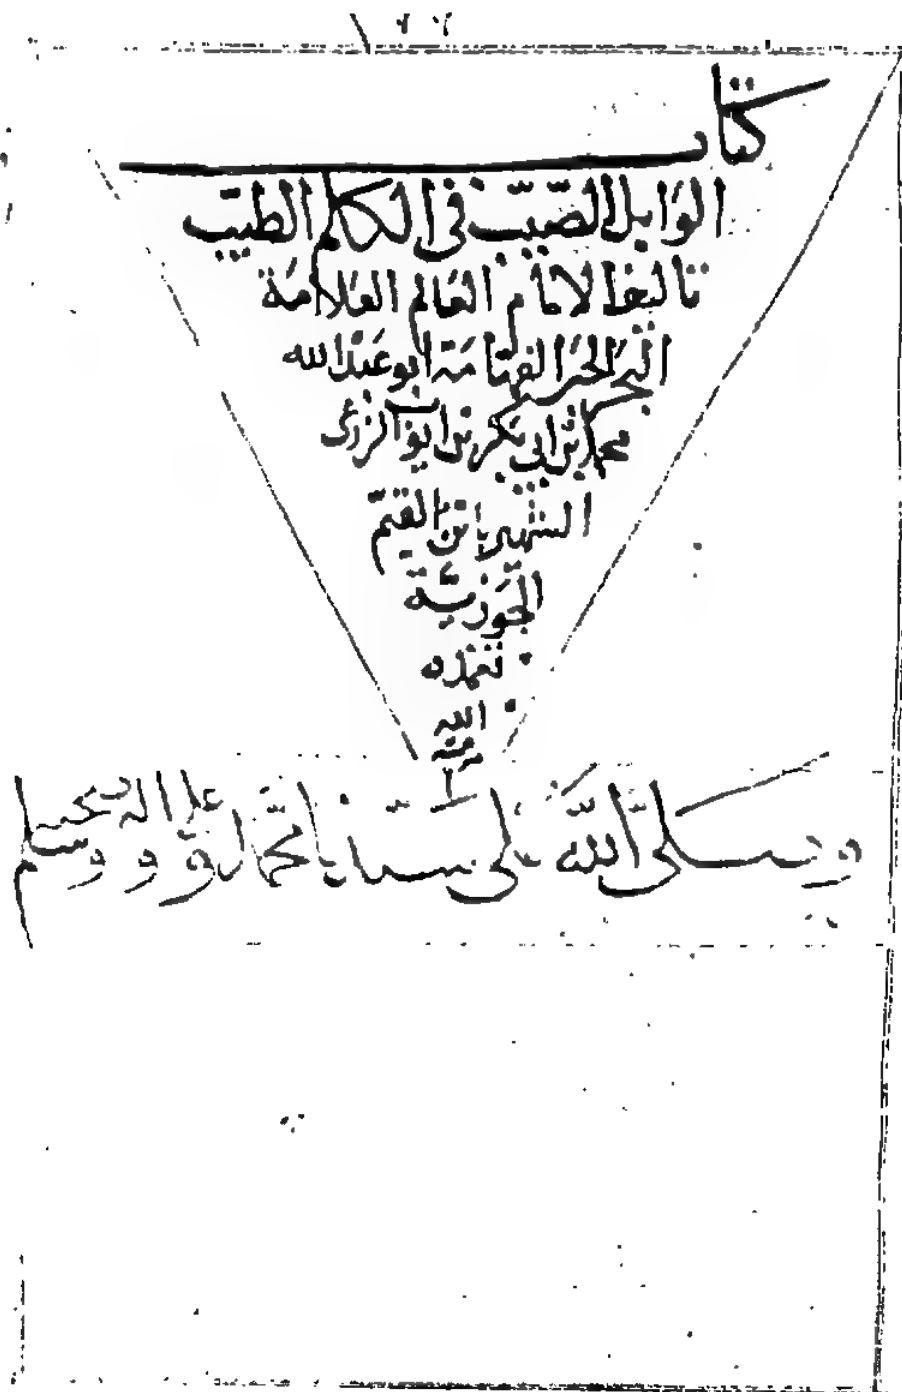 ١٢٢
كتاب
الوابل الصيب في الكلم الطيب
تاليف الامام العالم العلامة
البحر الحبر الفهامة ابو عبد الله
محمد ابن ابي بكر بن ايوب الزرعى
الشهير بابن القيم
الجوزية
تغمده
الله
برحمته
وصلى الله على سيدنا محمد وعلى اله وصحبه وسلم